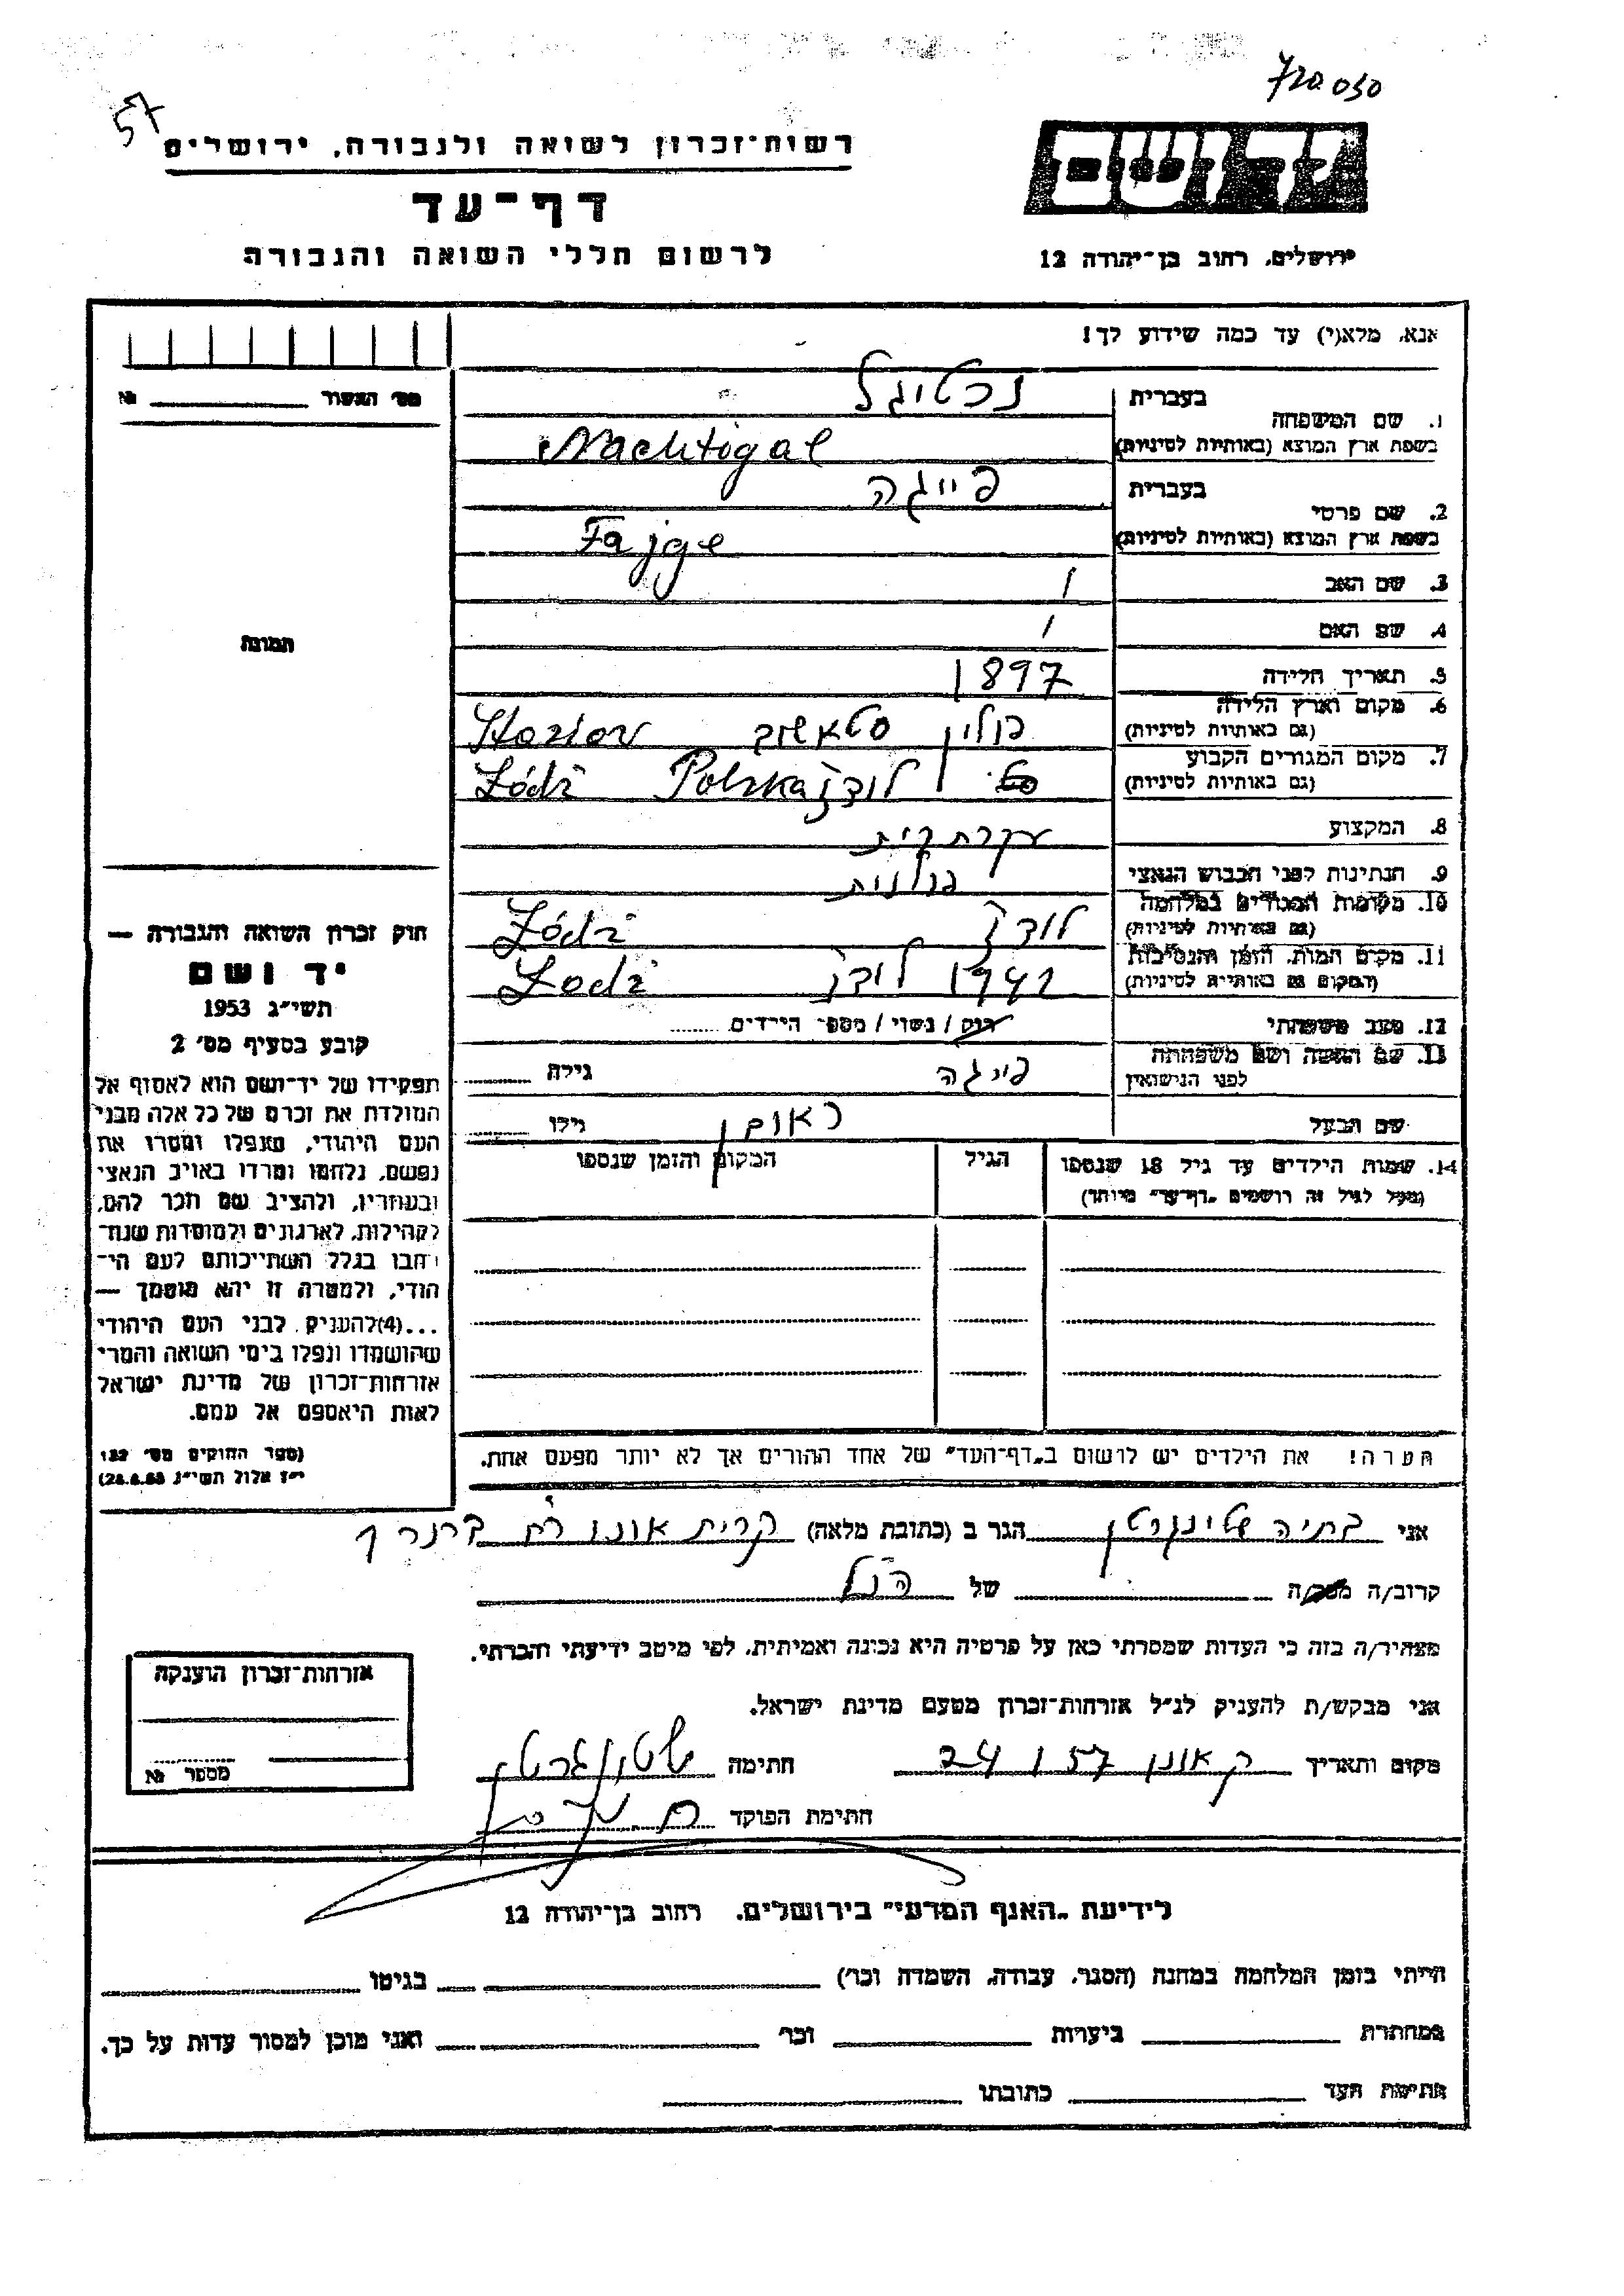 720.050
57
רשות-זכרון לשואה ולגבורה, ירושלים
דף-עד
לרשום חללי השואה והגבורה
יד ושם
ירושלים, רחוב בן-יהודה 12
אנא, מלא(י) עד כמה שידוע לך!
מס' האשור № 
בעברית נכטיגל
1. שם המשפחה
בשפת ארץ המוצא (באותיות לטיניות) Nachtigal
בעברית פייגה
2. שם פרטי
בשפת ארץ המוצא (באותיות לטיניות) Fajge
3. שם האב /
4. שם האם /
תמונה
5. תאריך הלידה 1897
6. מקום וארץ הלידה
(גם באותיות לטיניות) פולין סטאשוב
7. מקום המגורים הקבוע
(גם באותיות לטיניות) לודז Polska Łódź
8. המקצוע עקרת בית
9. הנתינות לפני הכבוש הנאצי פולנית
10. מקומות המגורים במלחמה
(גם באותיות לטיניות) לודז Łódź
11. מקום המות, הזמן והנסיבות
(המקום גם באותיות לטיניות) 1942 לודז Lodz
12. מצב משפחתי רוק / נשוי / מספר הילדים
13. שם האשה ושם משפחתה
לפני הנישואין פייגה גילה
שם הבעל ראובן גילו
14. שמות הילדים עד גיל 18 שנספו הגיל המקום והזמן שנספו
(מעל לגיל זה רושמים "דף-עד" מיוחד)
חוק זכרון השואה והגבורה —
יד ושם
תשי"ג 1953
קובע בסעיף מס' 2
תפקידו של יד-ושם הוא לאסוף אל
המולדת את זכרם של כל אלה מבני
העם היהודי, שנפלו ומסרו את
נפשם, נלחמו ומרדו באויב הנאצי
ובעוזריו, ולהציב שם וזכר להם,
לקהילות, לארגונים ולמוסדות שנח-
רבו בגלל השתייכותם לעם הי-
הודי, ולמטרה זו יהא מוסמך —
...(4)להעניק לבני העם היהודי
שהושמדו ונפלו בימי השואה והמרי
אזרחות-זכרון של מדינת ישראל
לאות היאספם אל עמם.
(ספר החוקים מס' 132
י"ז אלול תשי"ג 28.8.53)
הערה! את הילדים יש לרשום ב"דף-העד" של אחד ההורים אך לא יותר מפעם אחת.
אני בתיה שטינגרטן הגר ב (כתובת מלאה) קרית אונו
קרוב/ה מכר/ה של הנ"ל
מצהיר/ה בזה כי העדות שמסרתי כאן על פרטיה היא נכונה ואמיתית, לפי מיטב ידיעתי והכרתי.
אני מבקש/ת להעניק לנ"ל אזרחות-זכרון מטעם מדינת ישראל.
מקום ותאריך ק אונו 24 1 57 חתימה
חתימת הפוקד
אזרחות-זכרון הוענקה
מספר №
לידיעת "האגף המדעי" בירושלים, רחוב בן-יהודה 12
הייתי בזמן המלחמה במחנה (הסגר, עבודה, השמדה וכו') בגיטו
במחתרת ביערות וכו' ואני מוכן למסור עדות על כך.
חתימת העד כתובתו